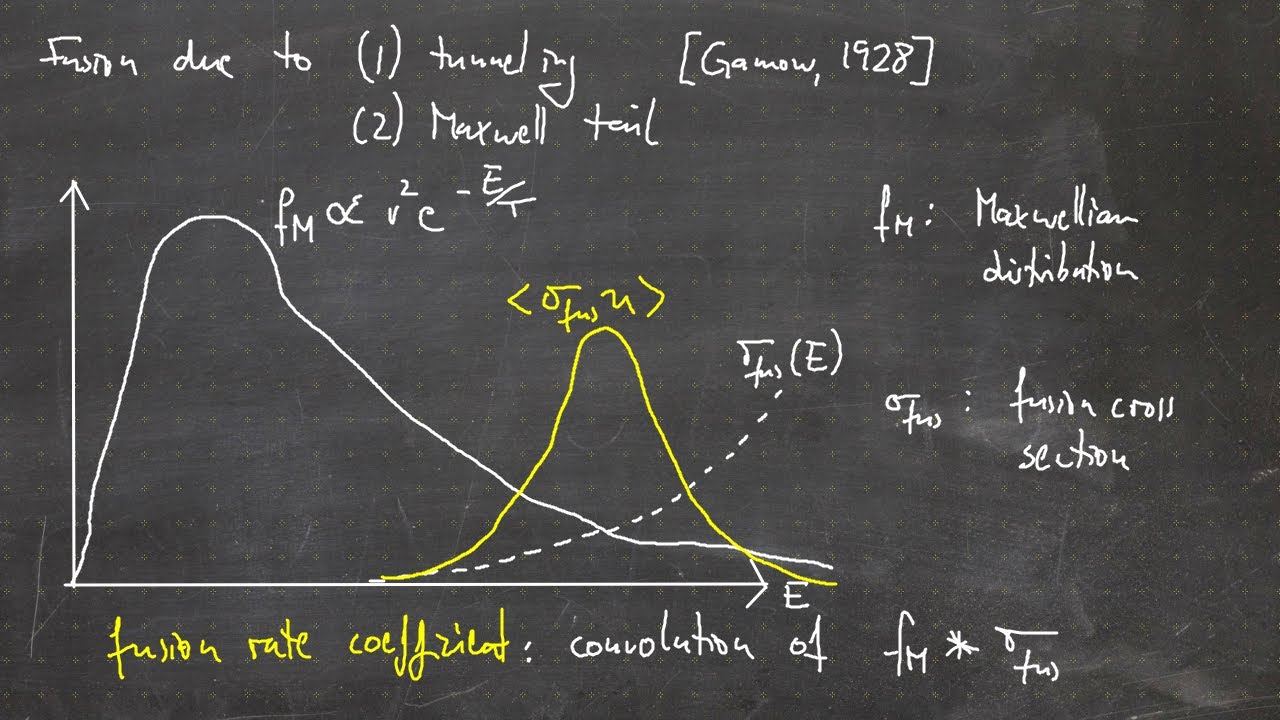 Fusion due to (1) tunneling [Gamow, 1928]
(2) Maxwell tail
f_M ∝ v² e^(-E/T)
f_M : Maxwellian
distribution
<σ_fus u>
σ_fus (E)
σ_fus : fusion cross
section
E
fusion rate coeffizient : convolution of f_M * σ_fus